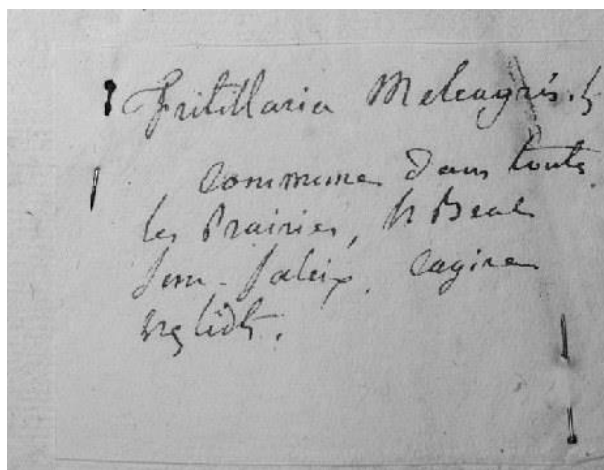 Fritillaria Meleagris. L
commune dans toutes
les Prairies, St Beat
Cagire